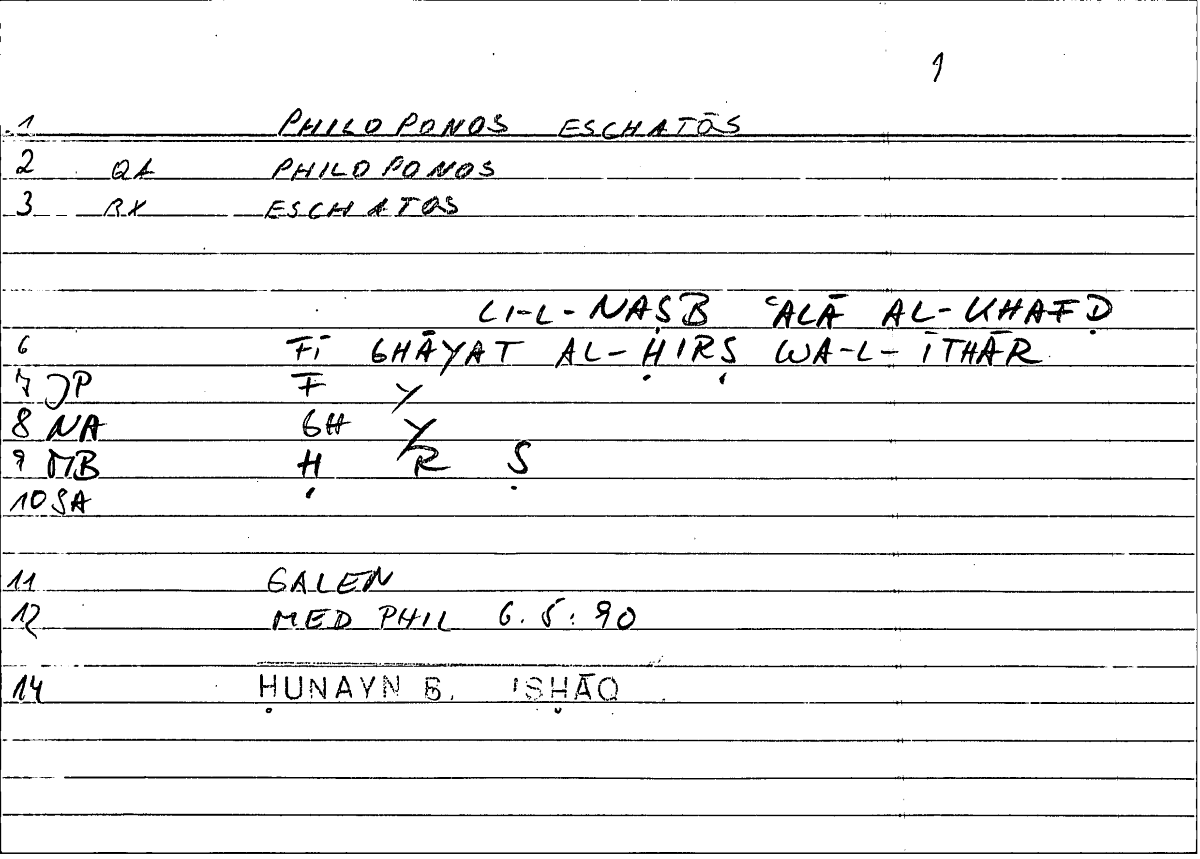 1
1 PHILOPONOS ESCHATŌS
2 QA PHILOPONOS
3 RX ESCHATOS
LI-L-NAṢB ʿALĀ AL-KHAFḌ
6 FĪ GHĀYAT AL-ḤIRṢ WA-L-ĪTHĀR
7 JP F Y
8 NA GH Y
9 MB Ḥ R Ṣ
10 SA
11 GALEN
12 MED PHIL 6.5:90
14 ḤUNAYN B. ISḤĀQ